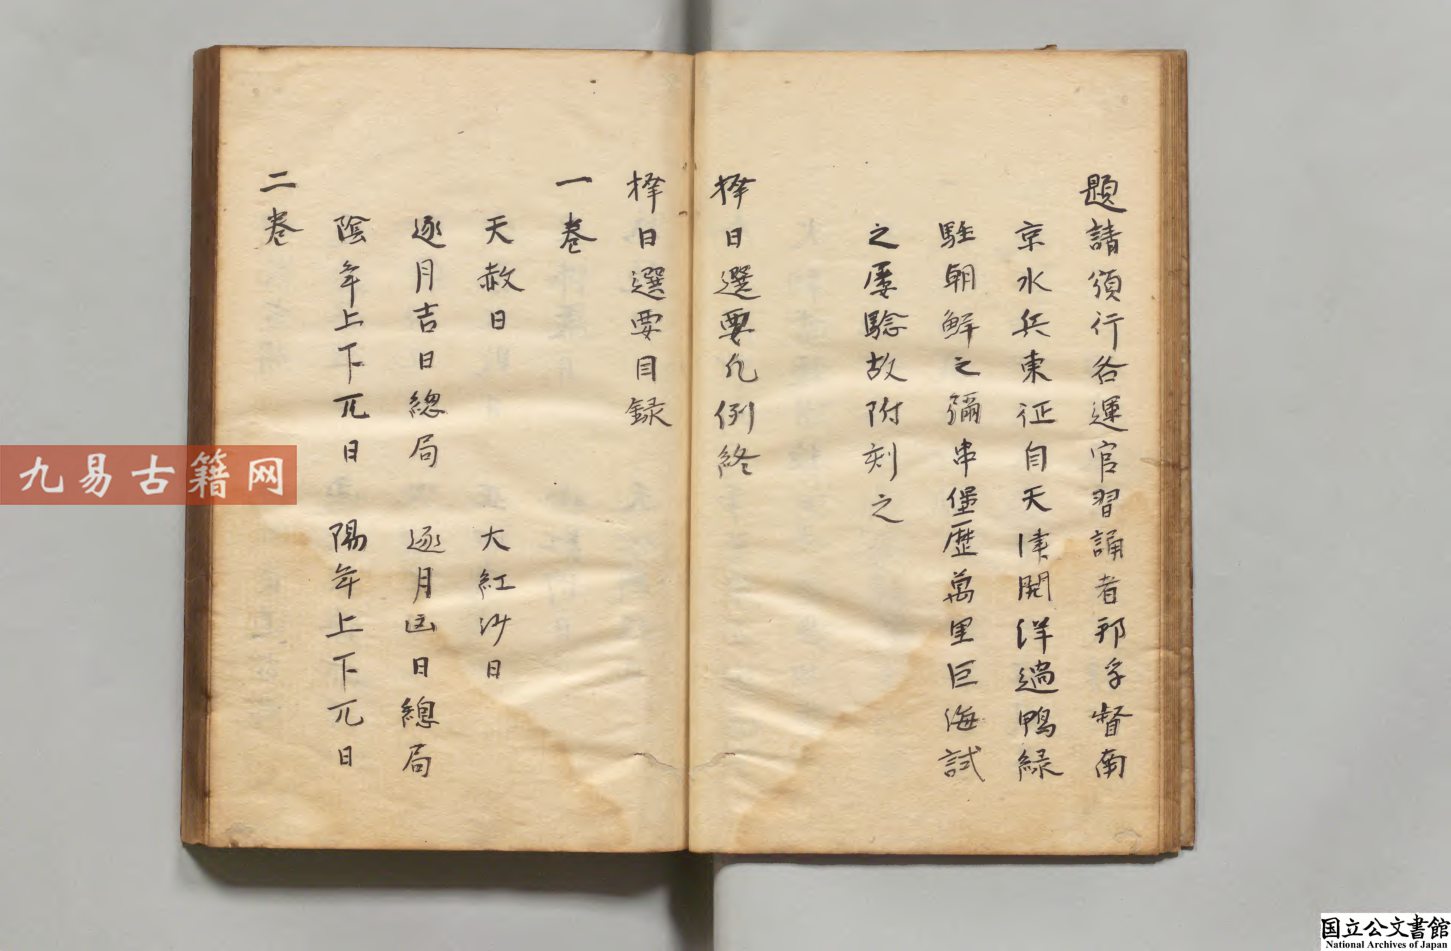 題請須行各運官習誦者邢孚督南
京水兵東征自天津開洋過鴨綠
駐朝鮮之彌串堡歷萬里巨海試
之屡騐故附刻之
择日選要凡例終
择日選要目録
一卷
天赦日 大紅沙日
逐月吉日總局 逐月凶日總局
陰年上下兀日 陽年上下兀日
二卷
九易古籍网
国立公文書館
National Archives of Japan